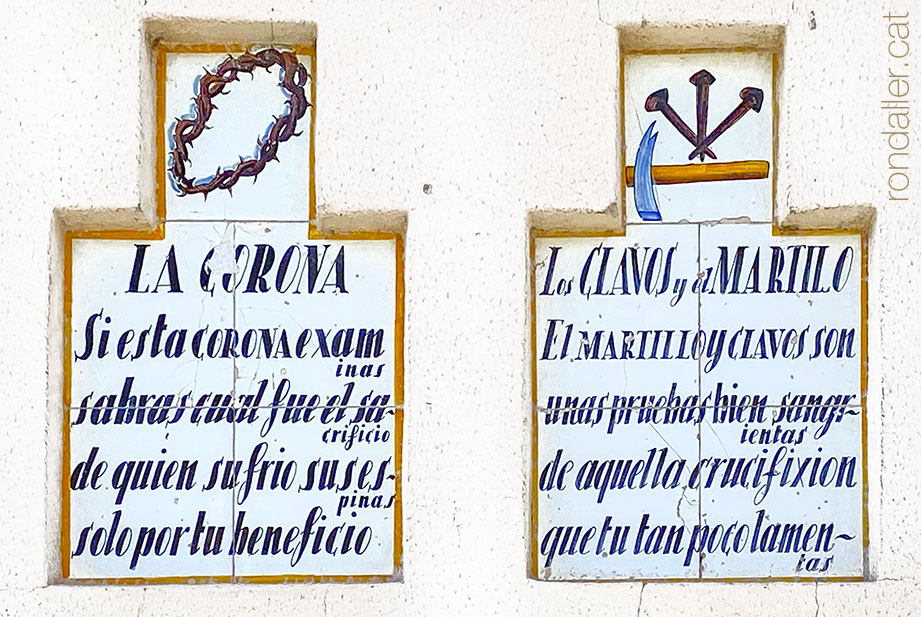 LA CORONA
Si esta CORONA exam
inas
sabras cual fue el sa-
crificio
de quien sufrio sus es-
pinas
solo por tu beneficio
Los CLAVOS y el MARTILLO
El MARTILLO y CLAVOS son
unas pruebas bien sangr-
ientas
de aquella crucifixion
que tu tan poco lamen-
tas
rondaller.cat